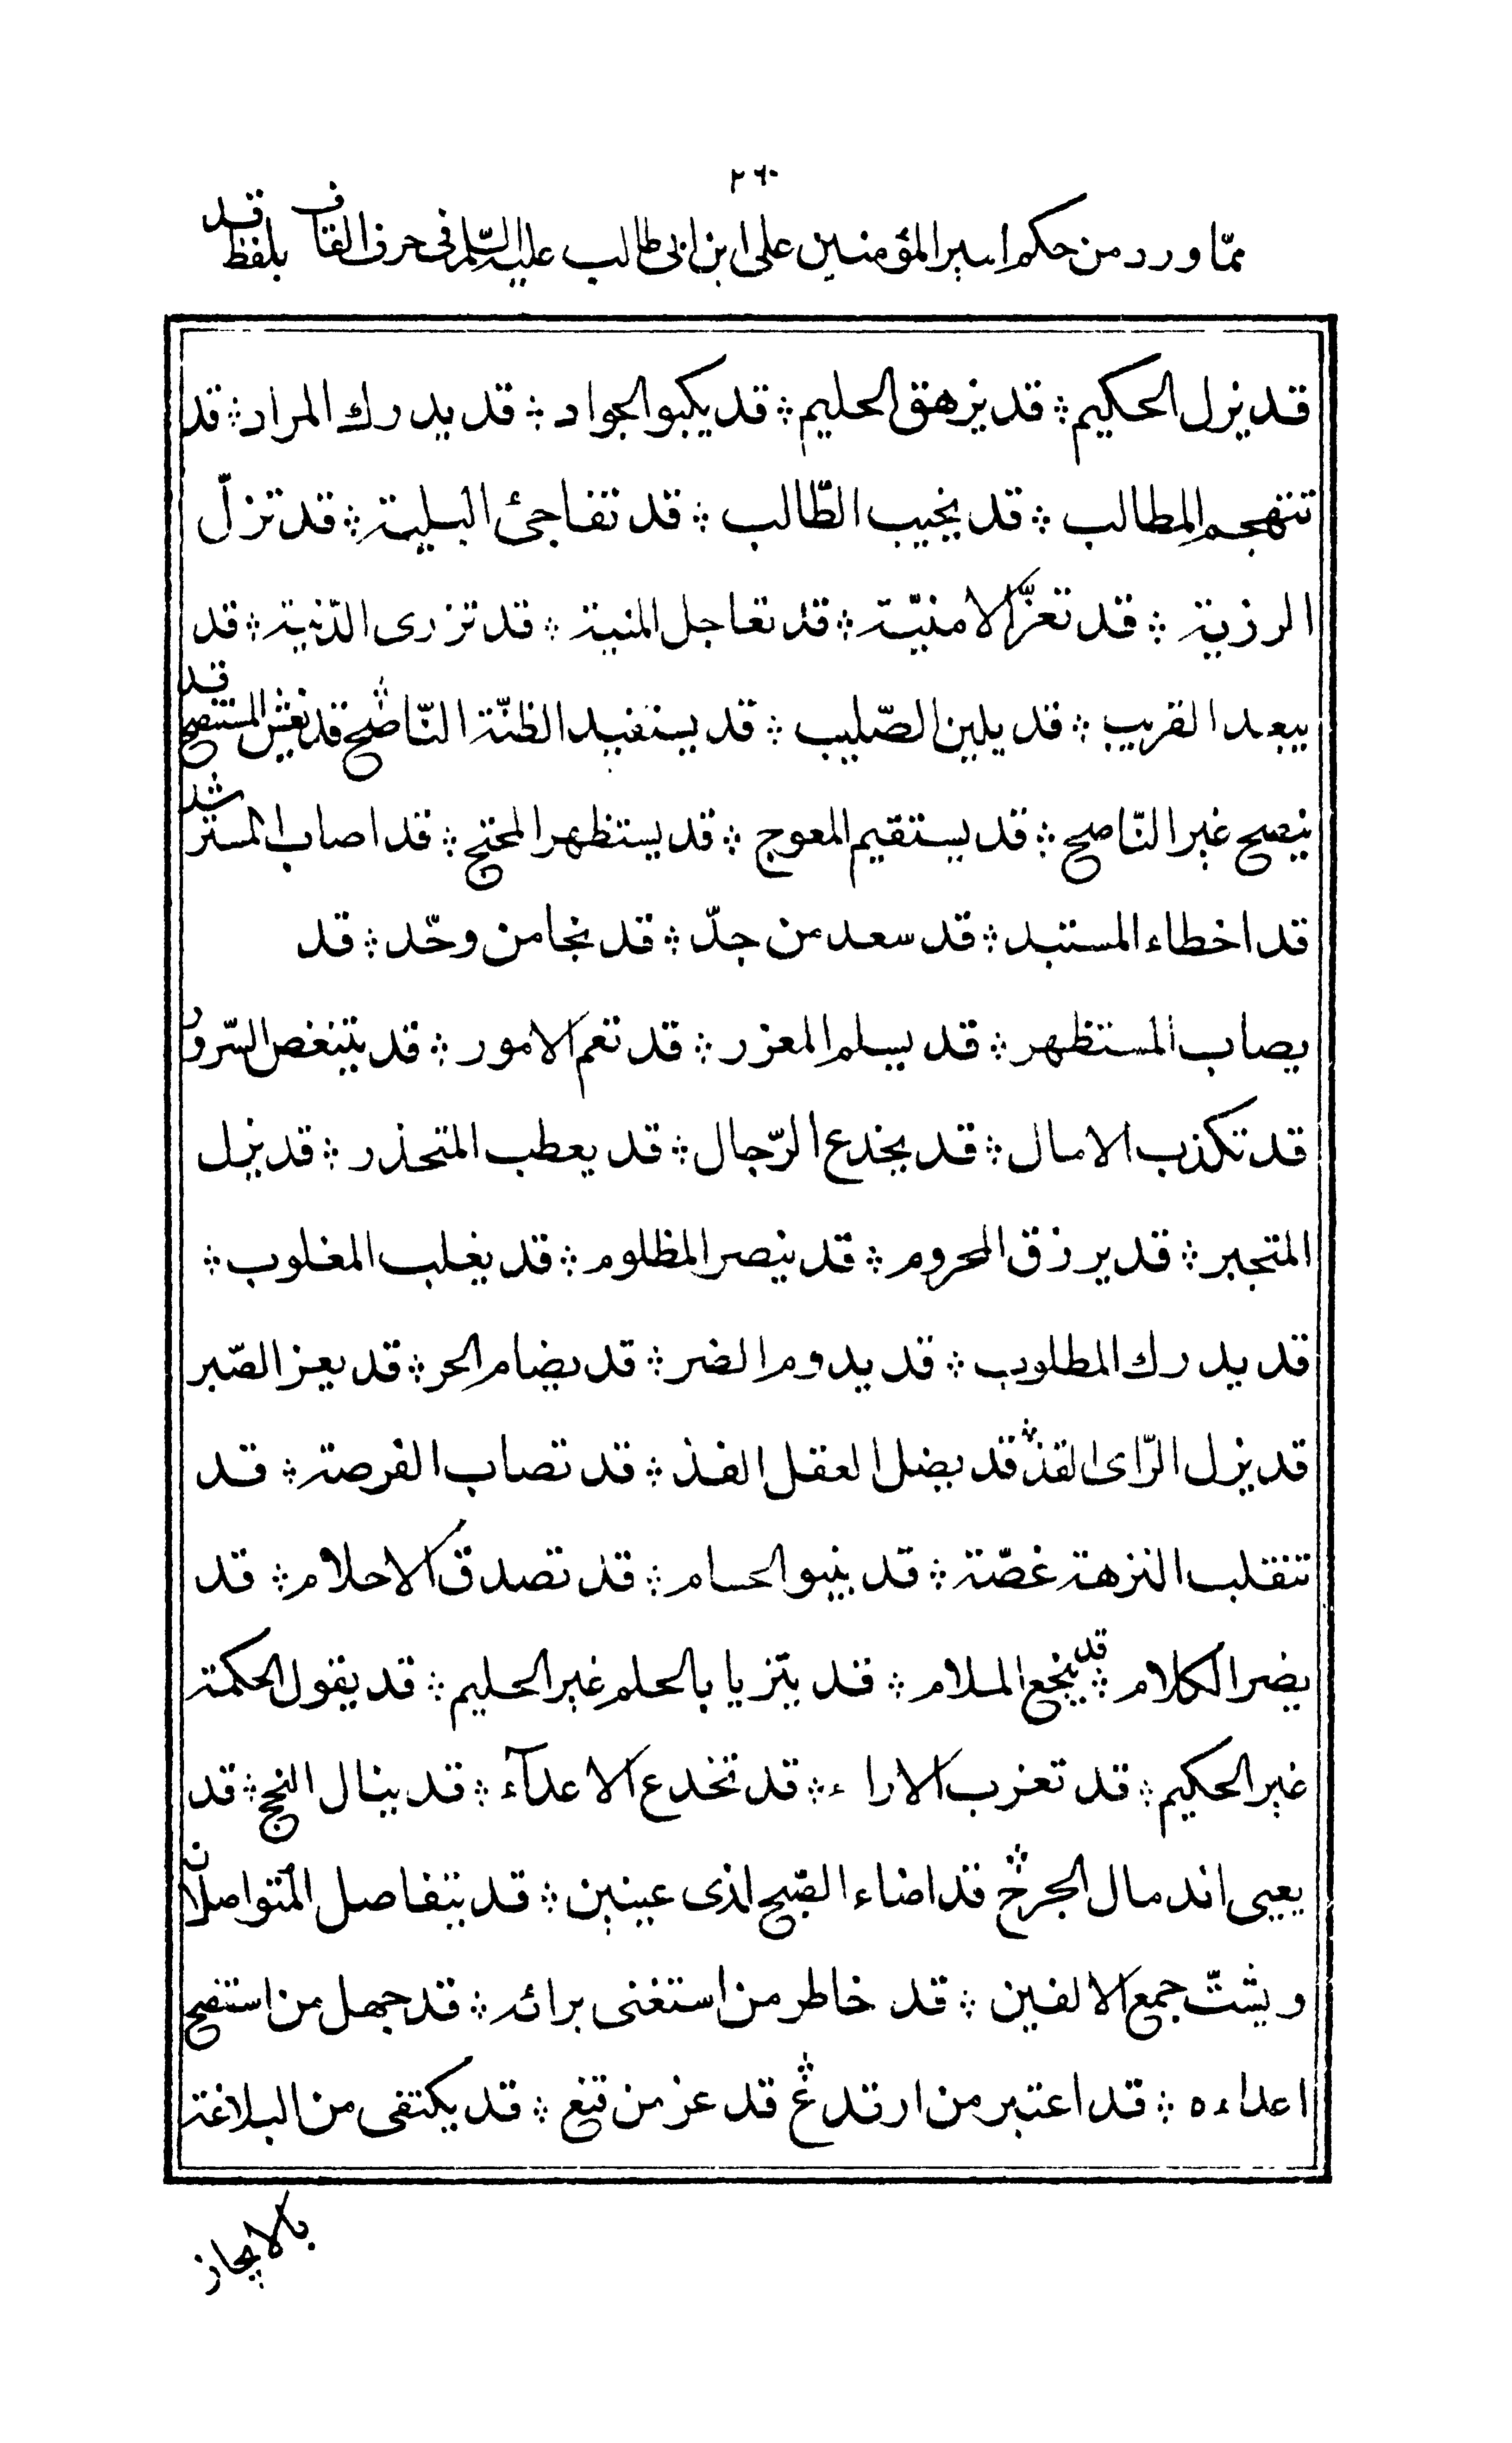 ٢٦٠
ممّا ورد من حكم امير المؤمنين على ابن ابى طالب عليه السّلم فى حرف القاف بلفظ قد
قد يزل الحكيم ؞ قد يزهق الحليم ؞ قد يكبو الجواد ؞ قد يدرك المراد ؞ قد
تنهجم المطالب ؞ قد يخيب الطّالب ؞ قد تفاجئ البلية ؞ قد تزلّ
الرزية ؞ قد تعزّ الامنيّة ؞ قد تعاجل المنية ؞ قد تزرى الدّنية ؞ قد
يبعد القريب ؞ قد يلين الصّليب ؞ قد يستفيد الظنّة النّاصح ؞ قد يغش المستنصح قد
ينصح غير النّاصح ؞ قد يستقيم المعوج ؞ قد يستظهر المحتج ؞ قد اصاب المسترشد
قد اخطاء المستبد ؞ قد سعد من جدّ ؞ قد نجا من وحّد ؞ قد
يصاب المستظهر ؞ قد يسلم المعزر ؞ قد تعم الامور ؞ قد يتنغص السّرور
قد تكذب الامال ؞ قد يخدع الرّجال ؞ قد يعطب المتحذر ؞ قد يزل
المتجبر ؞ قد يرزق المحروم ؞ قد ينصر المظلوم ؞ قد يغلب المغلوب ؞
قد يدرك المطلوب ؞ قد يدوم الضر ؞ قد يضام الحر ؞ قد يعز الصّبر
قد يزل الرّاى القذ ؞ قد يضل العقل الفذ ؞ قد تصاب الفرصة ؞ قد
تنقلب النزهة غصّة ؞ قد ينبو الحسام ؞ قد تصدق الاحلام ؞ قد
يضر الكلام ؞ قد ينجع الملام ؞ قد يتزيا بالحلم غير الحليم ؞ قد يقول الحكمة
غير الحكيم ؞ قد تعزب الاراء ؞ قد تخدع الاعدآء ؞ قد ينال النجح ؞ قد
يعيى اندمال الجرح ؞ قد اضاء الصّبح لذى عينين ؞ قد يتفاصل المتواصلان
ويشتّ جمع الالفين ؞ قد خاطر من استغنى برائه ؞ قد جهل من استنصح
اعداءه ؞ قد اعتبر من ارتدع ؞ قد عز من قنع ؞ قد يكتفى من البلاغة
بالايجاز